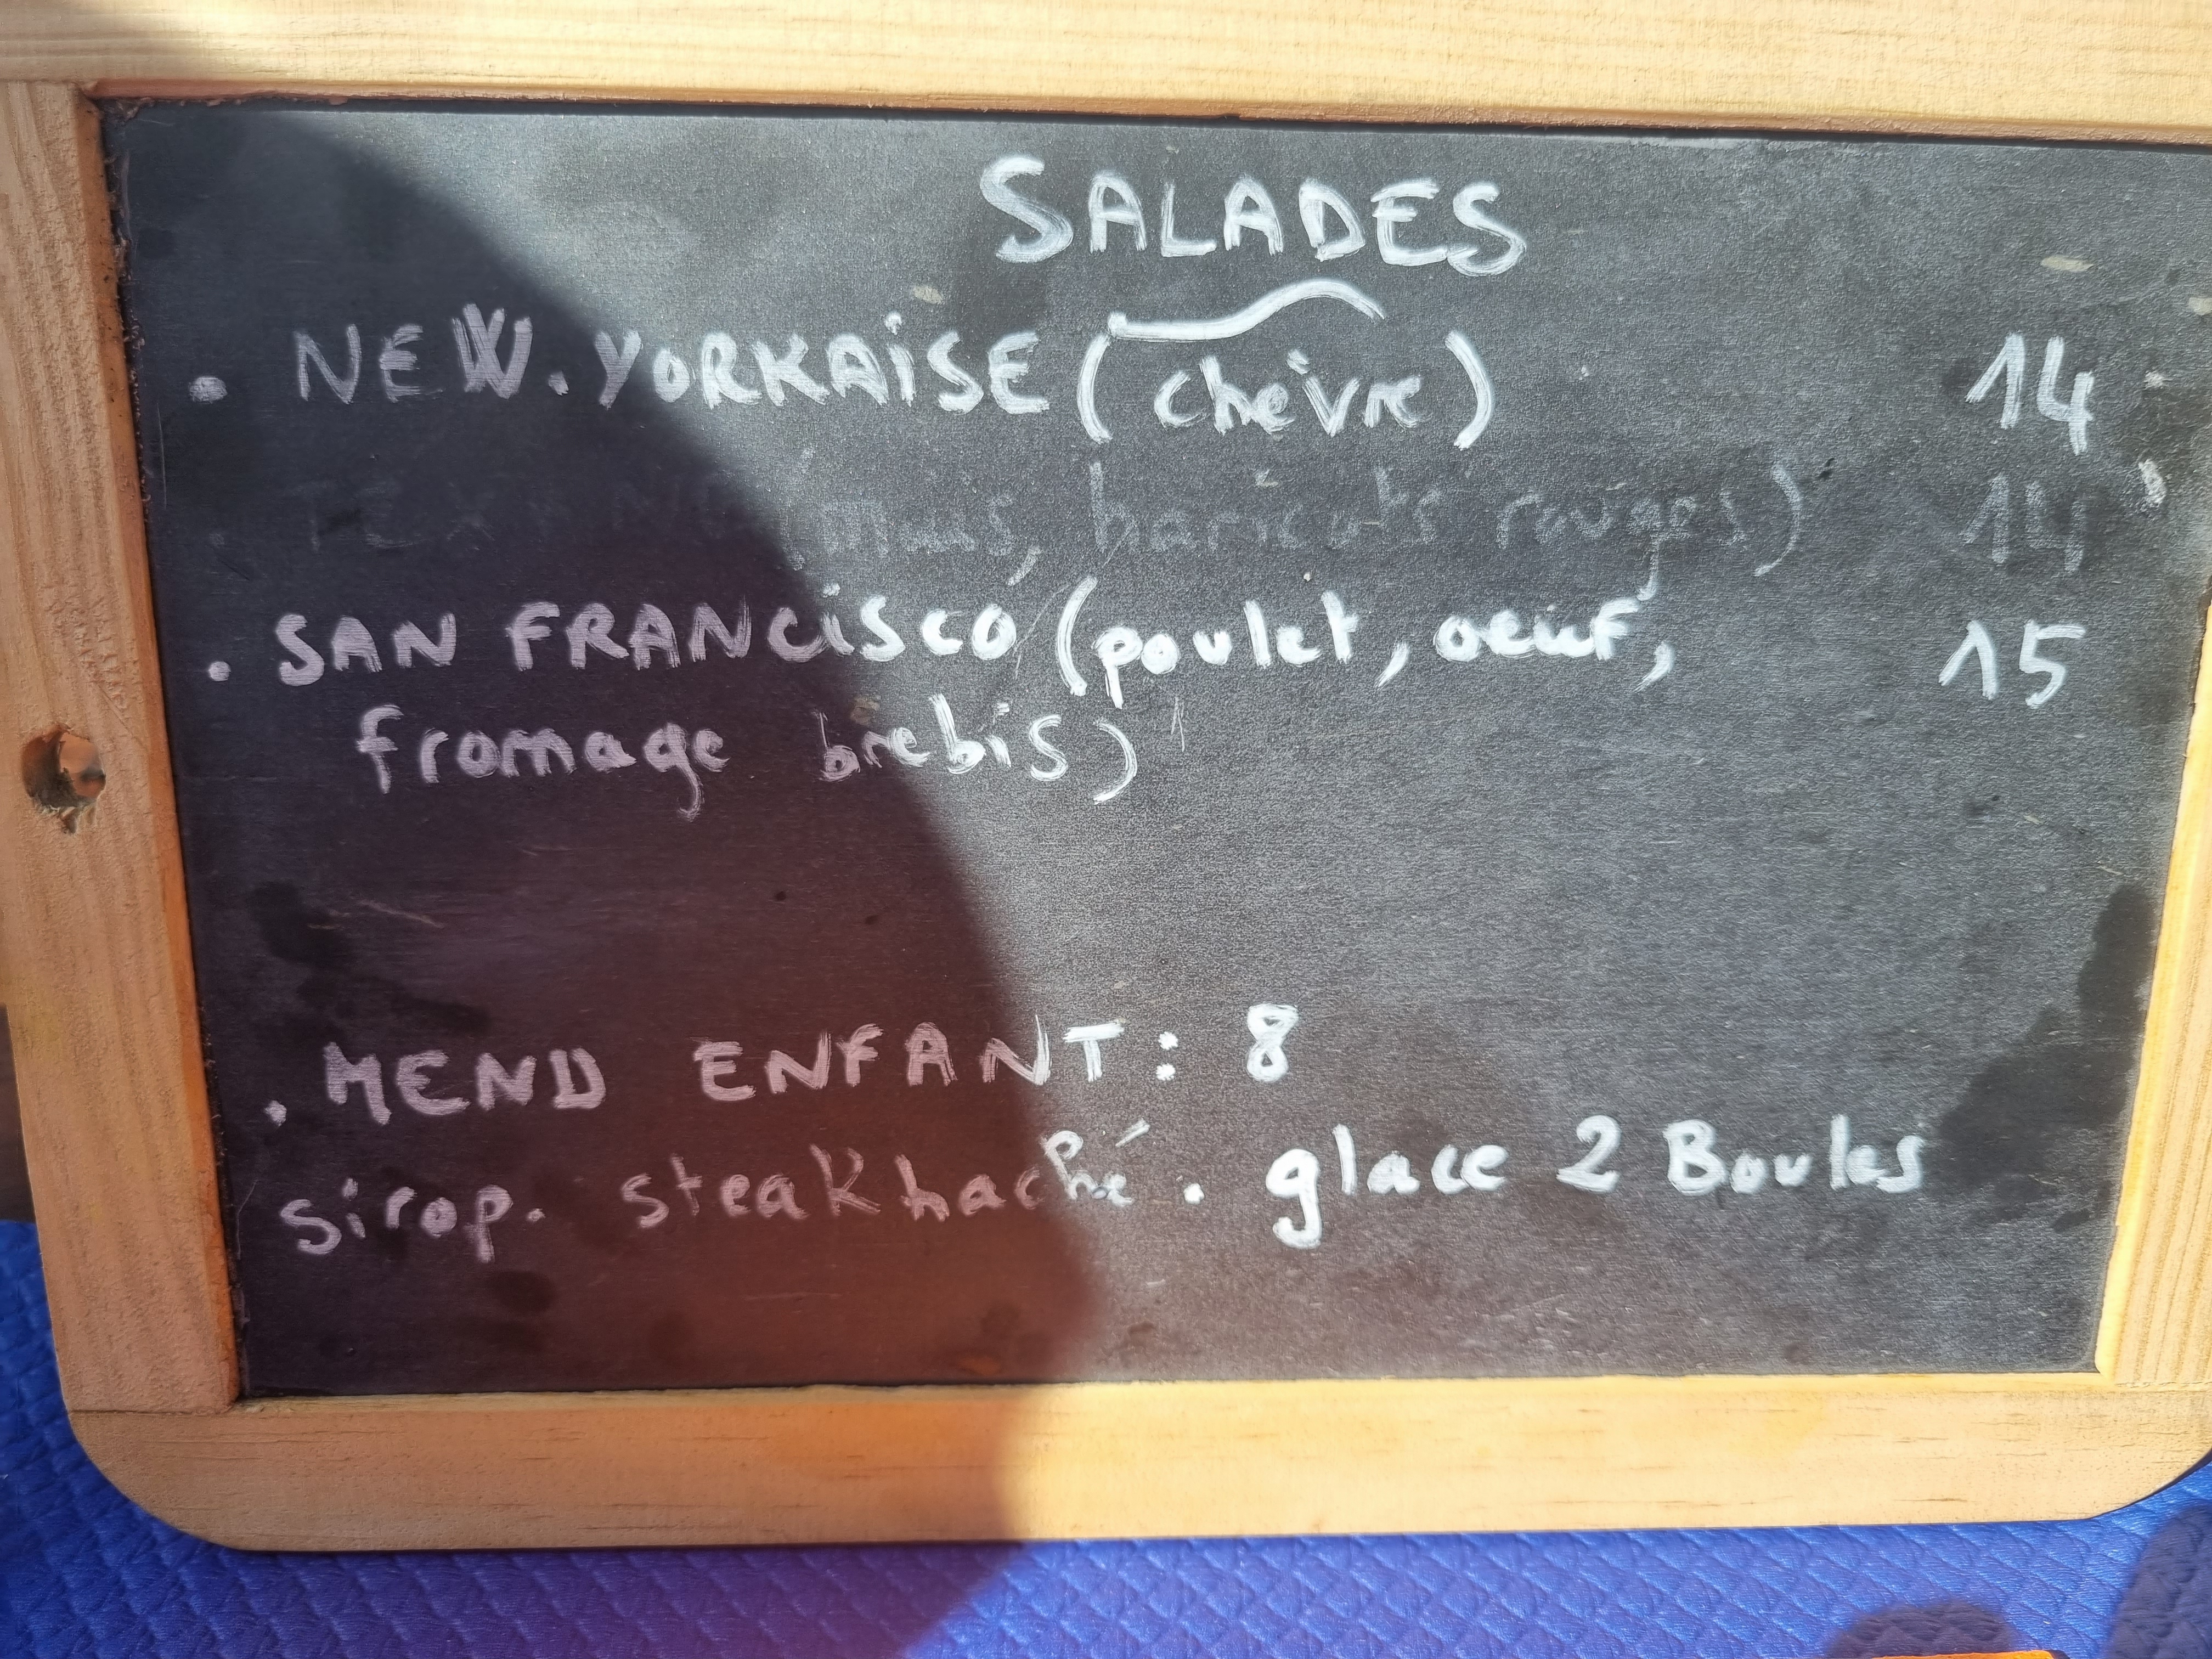 SALADES
. NEW.YORKAISE (chèvre) 14
maïs, haricots rouges) 14
. SAN FRANCISCO (poulet, oeuf, 15
fromage brebis)
. MENU ENFANT : 8
sirop. steak haché. glace 2 Boules